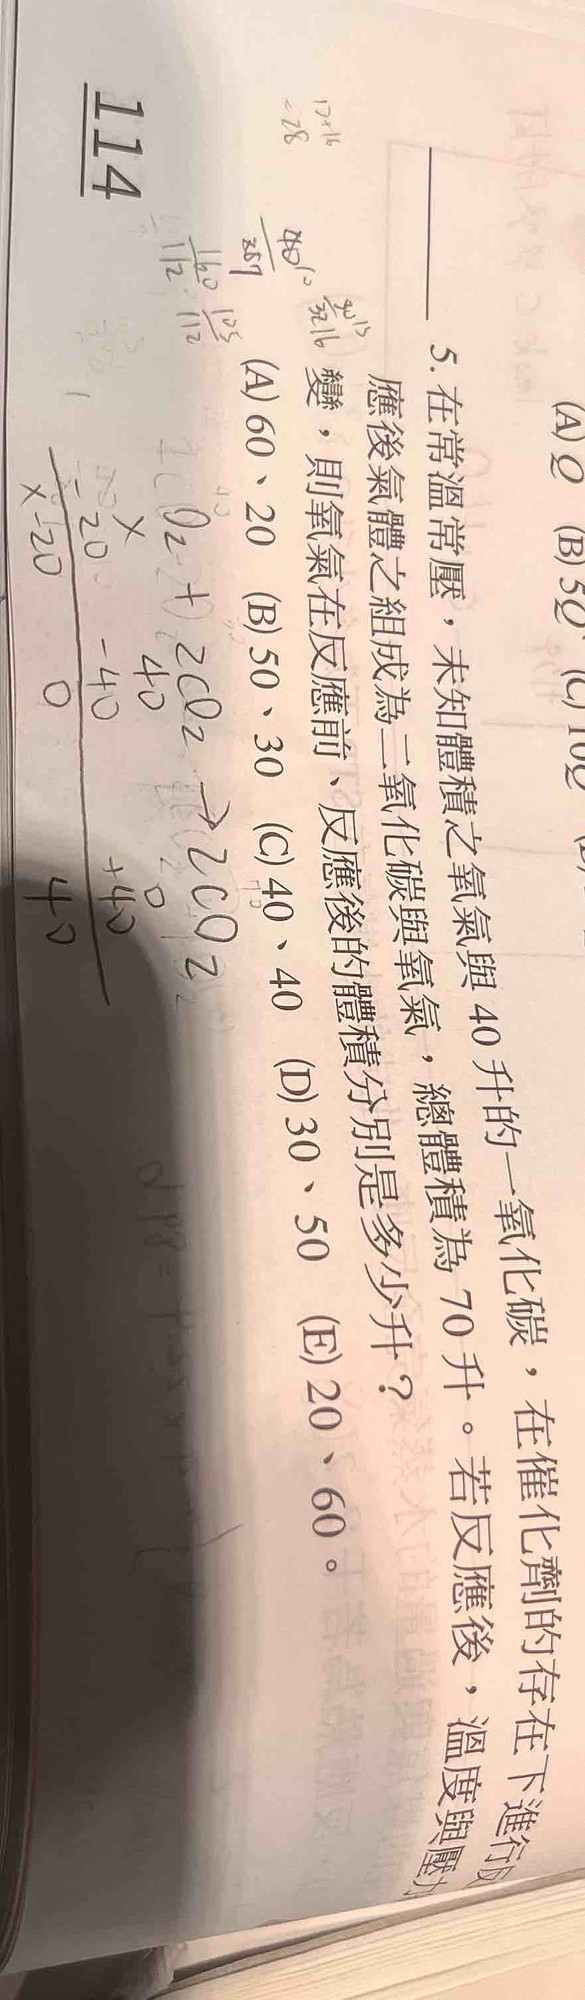 (A) Q (B) 5Q (C) 10Q
5. 在常溫常壓，未知體積之氧氣與 40 升的一氧化碳，在催化劑的存在下進行反
應後氣體之組成為二氧化碳與氧氣，總體積為 70 升。若反應後，溫度與壓力
變，則氧氣在反應前、反應後的體積分別是多少升？
(A) 60、20 (B) 50、30 (C) 40、40 (D) 30、50 (E) 20、60。
= 28
160
112
+ 2CO₂ → 2CO₂
x 40 0
-20 -40 +40
x-20 0 40
114